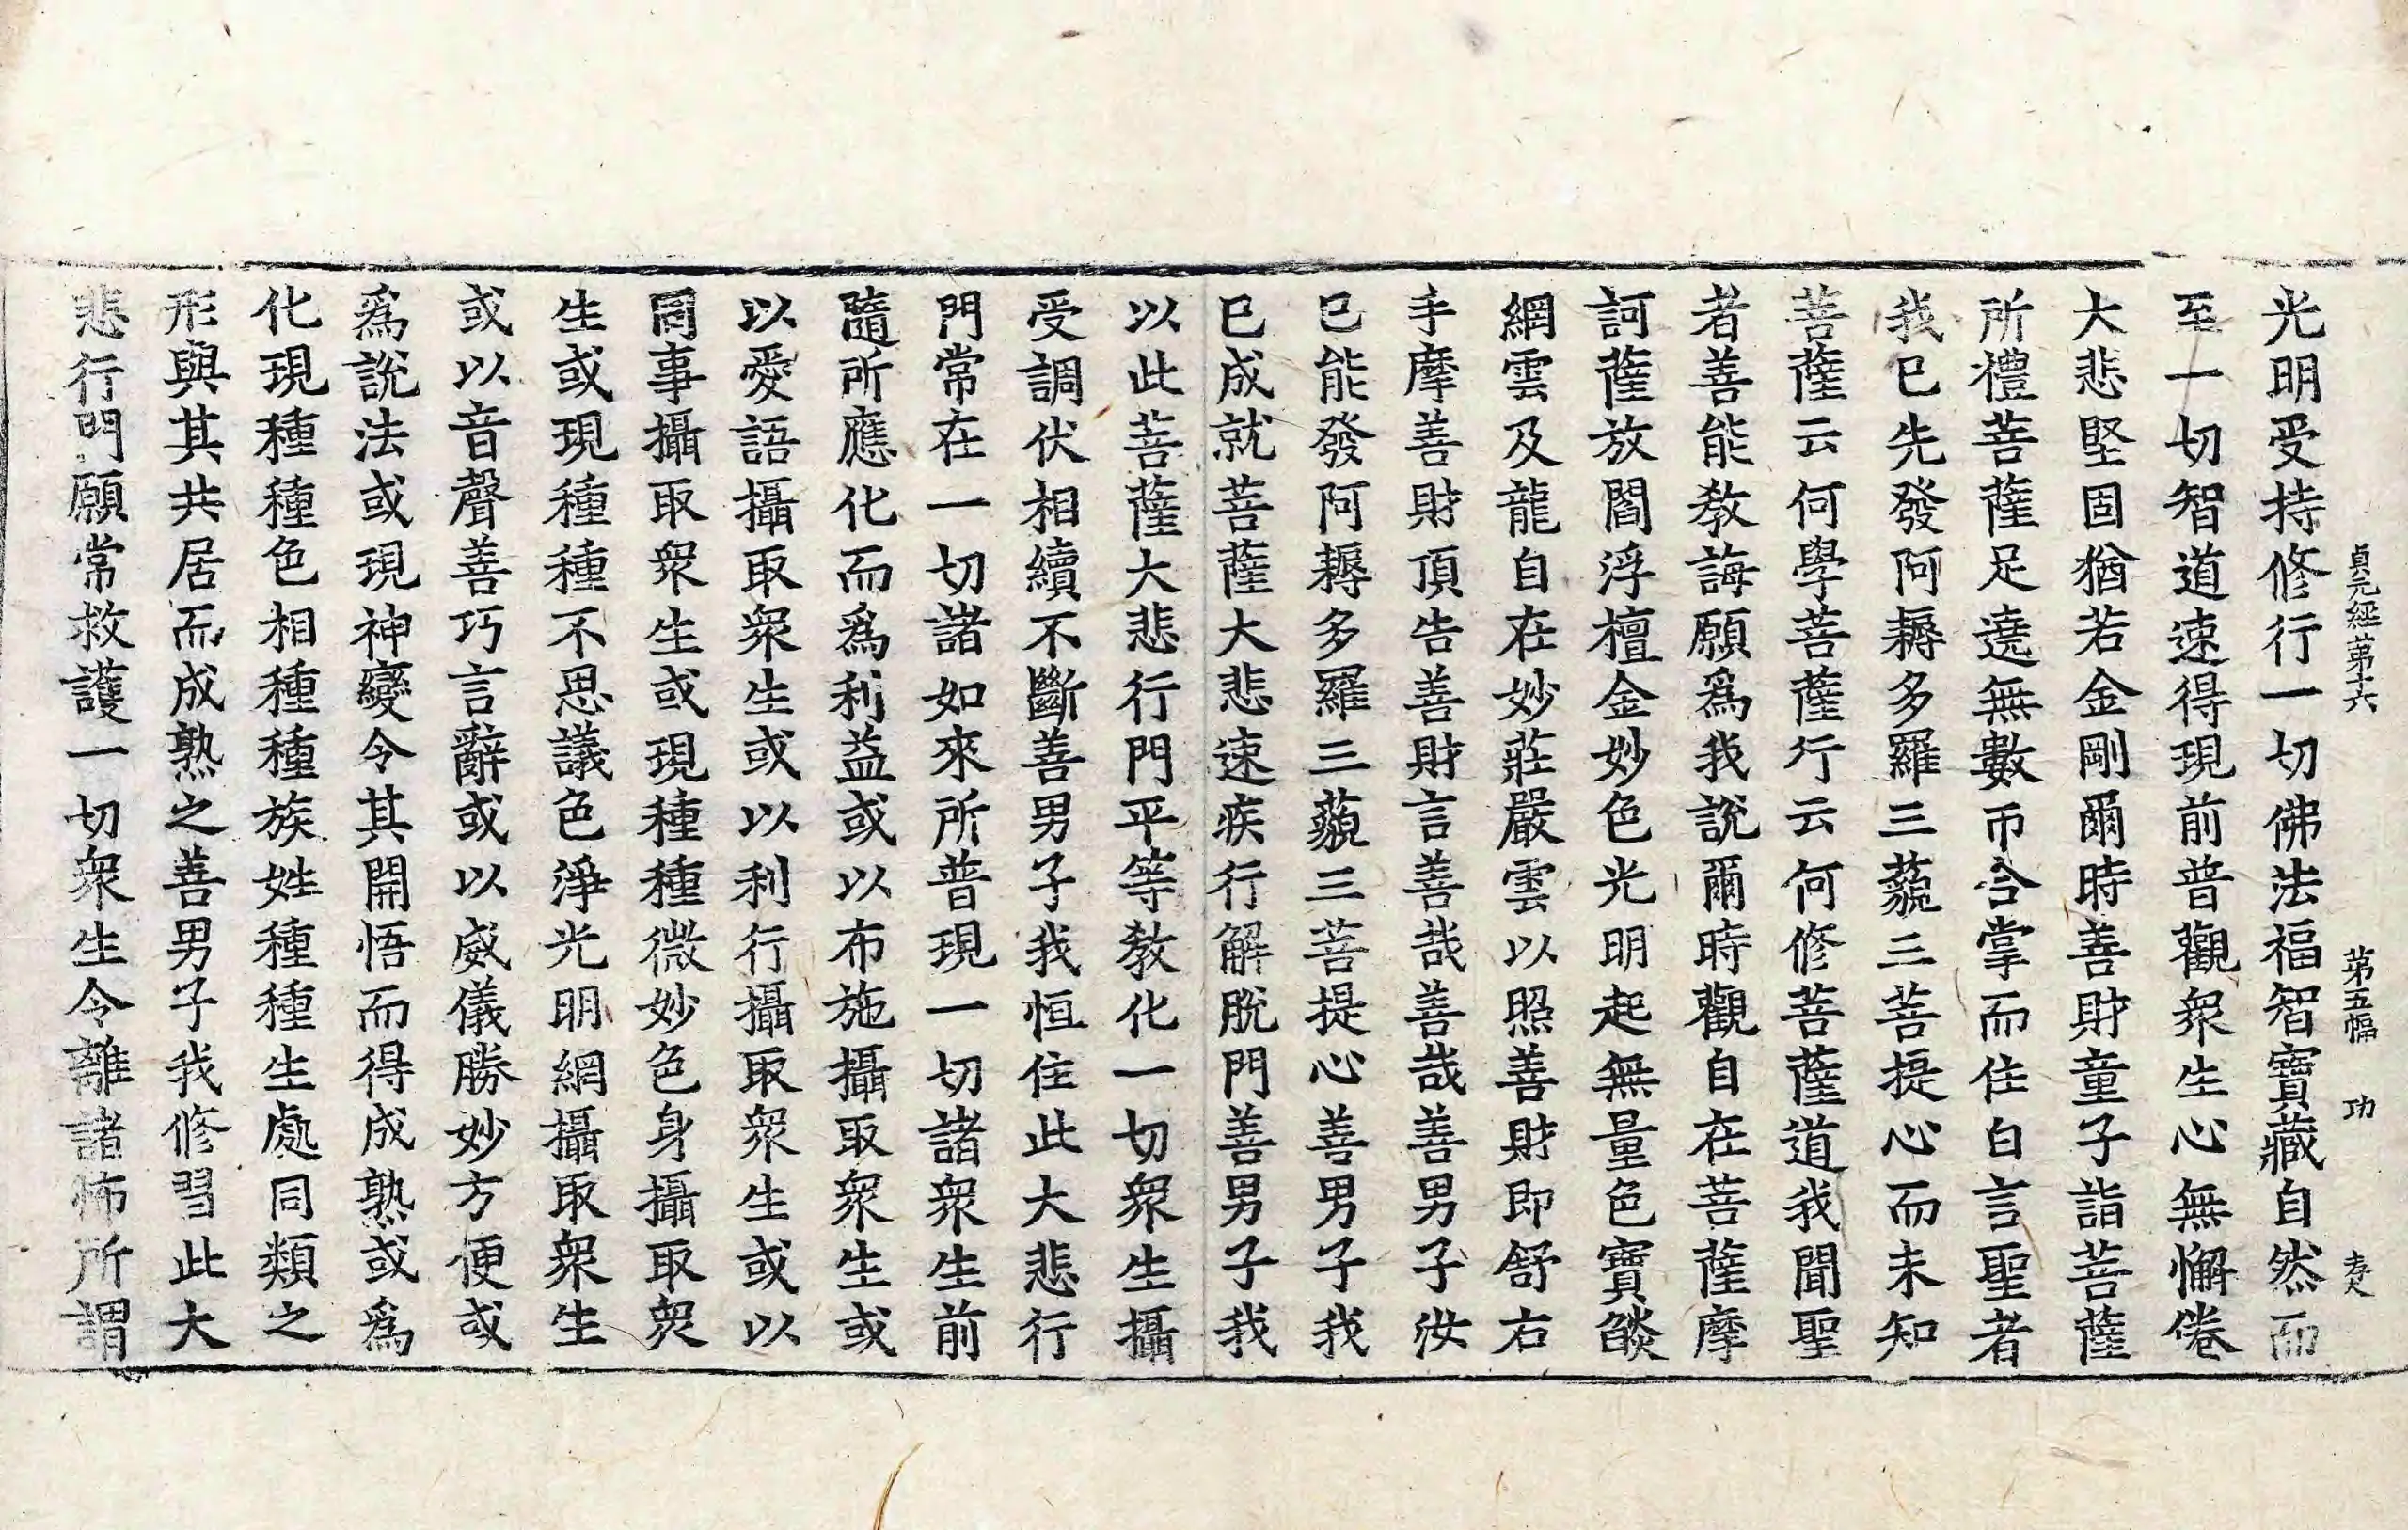 貞元經第十六 第五幅 功
光明受持修行一切佛法福智寶藏自然而
至一切智道速得現前普觀衆生心無懈倦
大悲堅固猶若金剛爾時善財童子詣菩薩
所禮菩薩足遶無數帀合掌而住白言聖者
我已先發阿耨多羅三藐三菩提心而未知
菩薩云何學菩薩行云何修菩薩道我聞聖
者善能教誨願爲我說爾時觀自在菩薩摩
訶薩放閻浮檀金妙色光明起無量色寶燄
網雲及龍自在妙莊嚴雲以照善財即舒右
手摩善財頂告善財言善哉善哉善男子汝
已能發阿耨多羅三藐三菩提心善男子我
已成就菩薩大悲速疾行解脫門善男子我
以此菩薩大悲行門平等教化一切衆生攝
受調伏相續不斷善男子我恒住此大悲行
門常在一切諸如來所普現一切諸衆生前
隨所應化而爲利益或以布施攝取衆生或
以愛語攝取衆生或以利行攝取衆生或以
同事攝取衆生或現種種微妙色身攝取衆
生或現種種不思議色淨光明網攝取衆生
或以音聲善巧言辭或以威儀勝妙方便或
爲說法或現神變令其開悟而得成熟或爲
化現種種色相種種族姓種種生處同類之
形與其共居而成熟之善男子我修習此大
悲行門願常救護一切衆生令離諸怖所謂